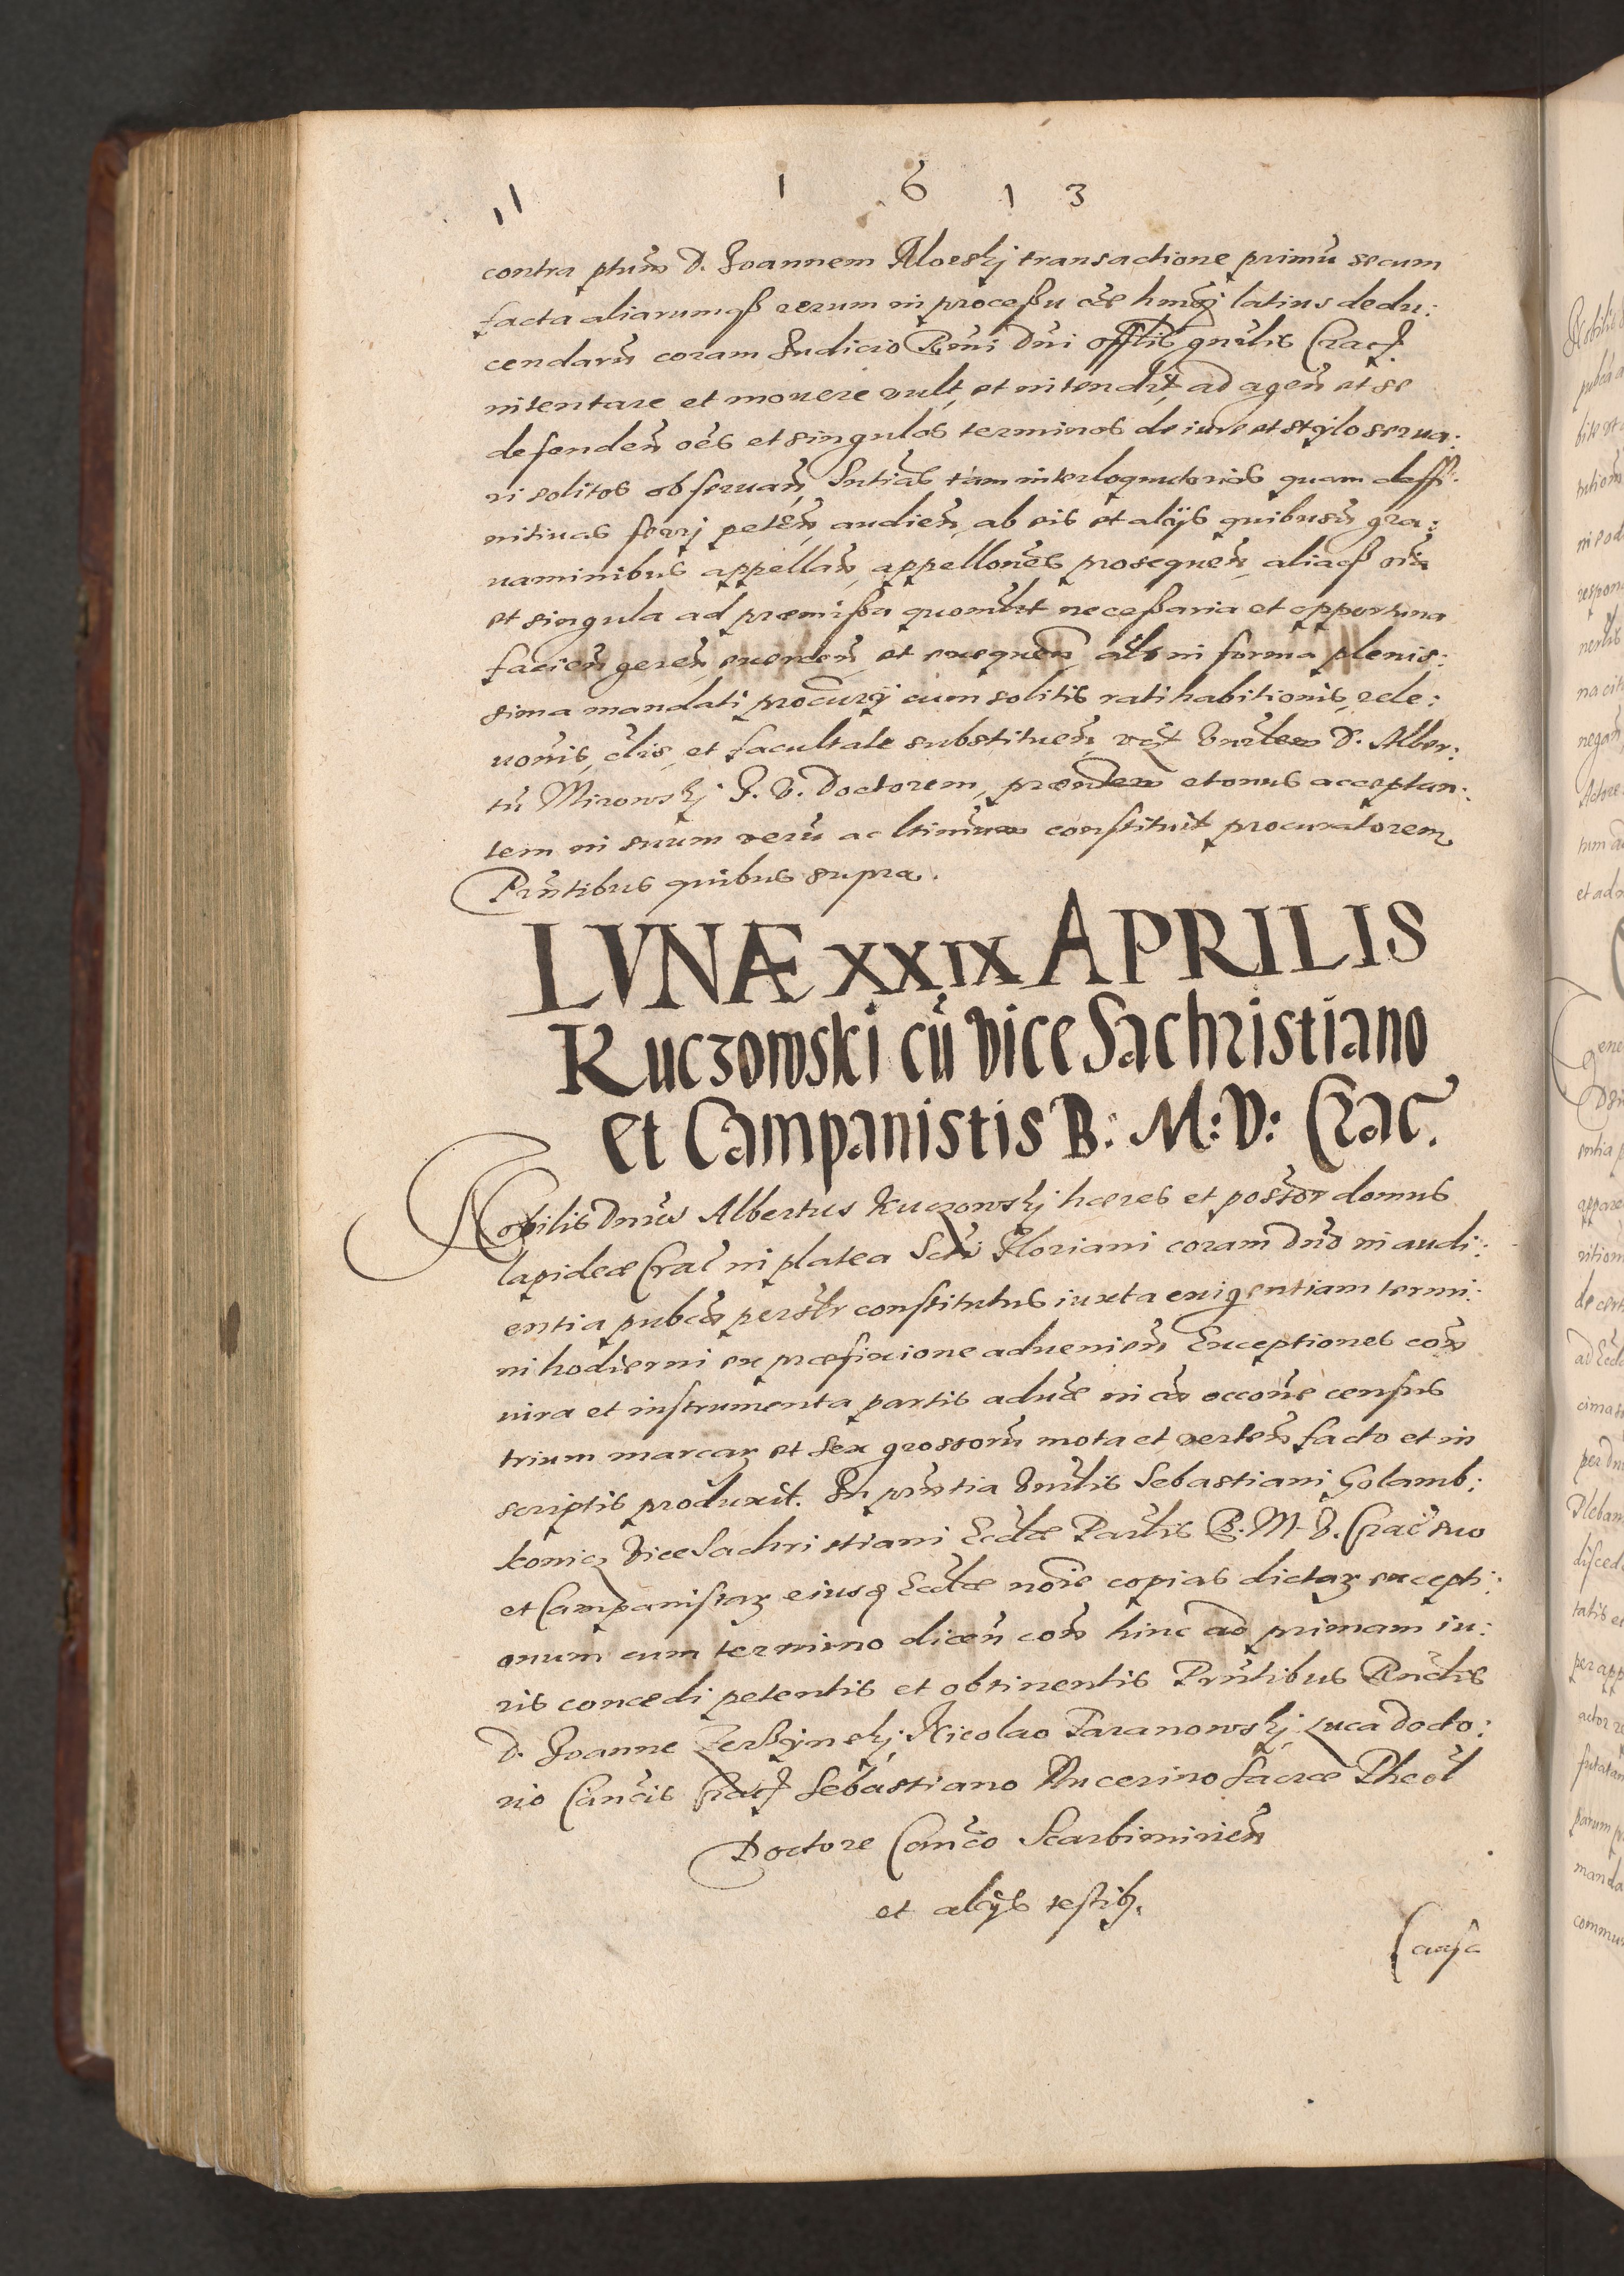 1613
contra ptum D. Joannem Kloeskj transactione primū secum
facta aliarumq̃ rerum in proceßu cæ hmōi latius dedu:
cendarū coram Iudicio Rñdi Dñi Offlis gnãlis Cracỹ.
intentare et mouere vult, et intendit, ad agen̄ et se
defenden̄ oẽs et singulos terminos de iure et stylo serua:
ri solitos obseruan̄, Sntias tam interloquutorias quam deffi:
nitiuas ferrj peten̄, audien̄, ab eis et alijs quibusũ gra:
uaminibus appellan̄, appellones prosequen̄, aliacq̃ oĩa
et singula ad præmißa quomlbt neceßaria et opportuna
facien̄ geren̄ exercen̄ et exequen̄, als in forma plenis:
sima mandati procurij cum solitis ratihabitionis, rele:
uonis, clis, et facultate substituen̄ vẽt Vnrlem D. Alber:
tū Mirowskj I. V. Doctorem, præntem et onus acceptan:
tem in suum verū ac ltimum constituit procuratorem
Pñtibus quibus supra.
LVNÆ XXIX APRILIS
Kuczowski cū Vice Sachristiano
et Campanistis B: M: V: Crac̃.
Nobilis Dñus Albertus Kuczowskj hæres et poss̃or domus
lapideæ Crac̃ in platea Scti Floriani coram Dño in audi:
entia pubca pers̃lr constitutus iuxta exigentiam termi:
ni hodierni ex præfixione aduenien̄ Exceptiones con̄
iura et instrumenta partis aduæ in cã occone census
trium marcaꝝ et sex grossorū mota et verten̄ facto et in
scriptis produxit. In pñtia Vnrlis Sebastiani Golamb:
konicz Vice Sachristiani Eccliæ Parlis B. M. V. Crac̃ suo
et Campanistaꝝ eiusq̃ Eccliæ noĩe copias dictaꝝ excepti:
onum cum termino dicen̄ con̄ hinc ad primam iu:
ris concedi petentis et obtinentis Pñtibus Rñdis
D. Joanne Zerzynskj, Nicolao Paranowskj, Luca Docto:
rio Cancis Cracỹ Sebastiano Nucerino Sacræ Theol
Doctore Canco Scarbimirien̄
et alijs testibꝫ.
Causa